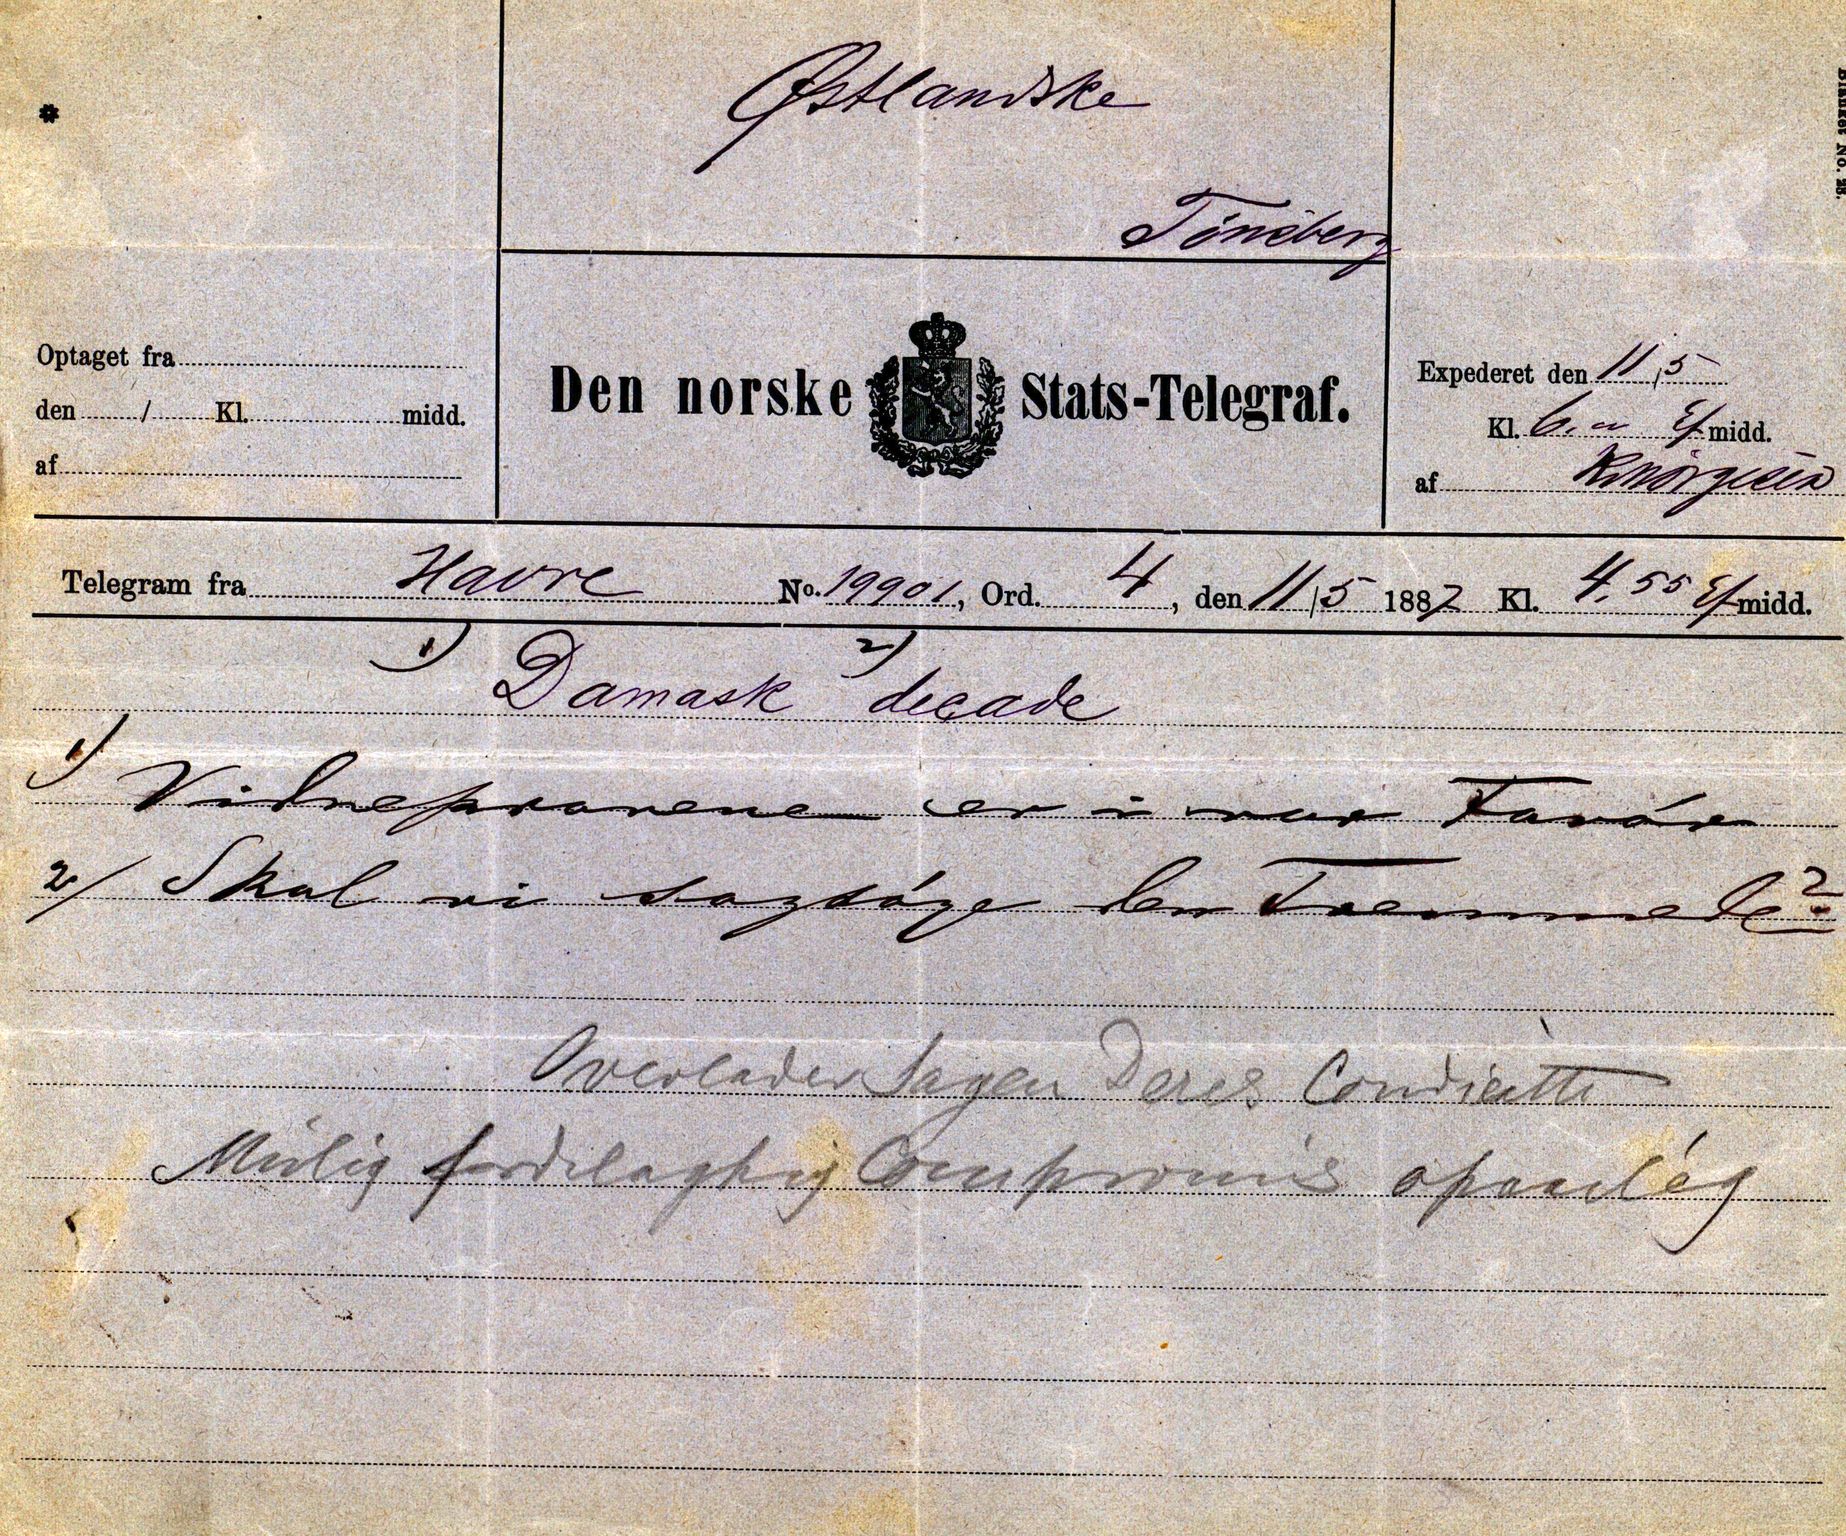 Østlandske
Tönsberg
Blanket No. 25.
Optaget fra
den / Kl. midd.
af
Den norske Stats-Telegraf.
Expederet den 11/5
Kl. 6. Ef midd.
af
Telegram fra Havre No. 19901, Ord. 4, den 11/5 1887 Kl. 4.55 Ef midd.
1) Damask 2) decade
1) Vidneprovene er i vor Favör
2/ Skal vi sagsöge den Fremmede?
Overlader Sagen Deres Conduitte
Mulig fordelagtig Compromis